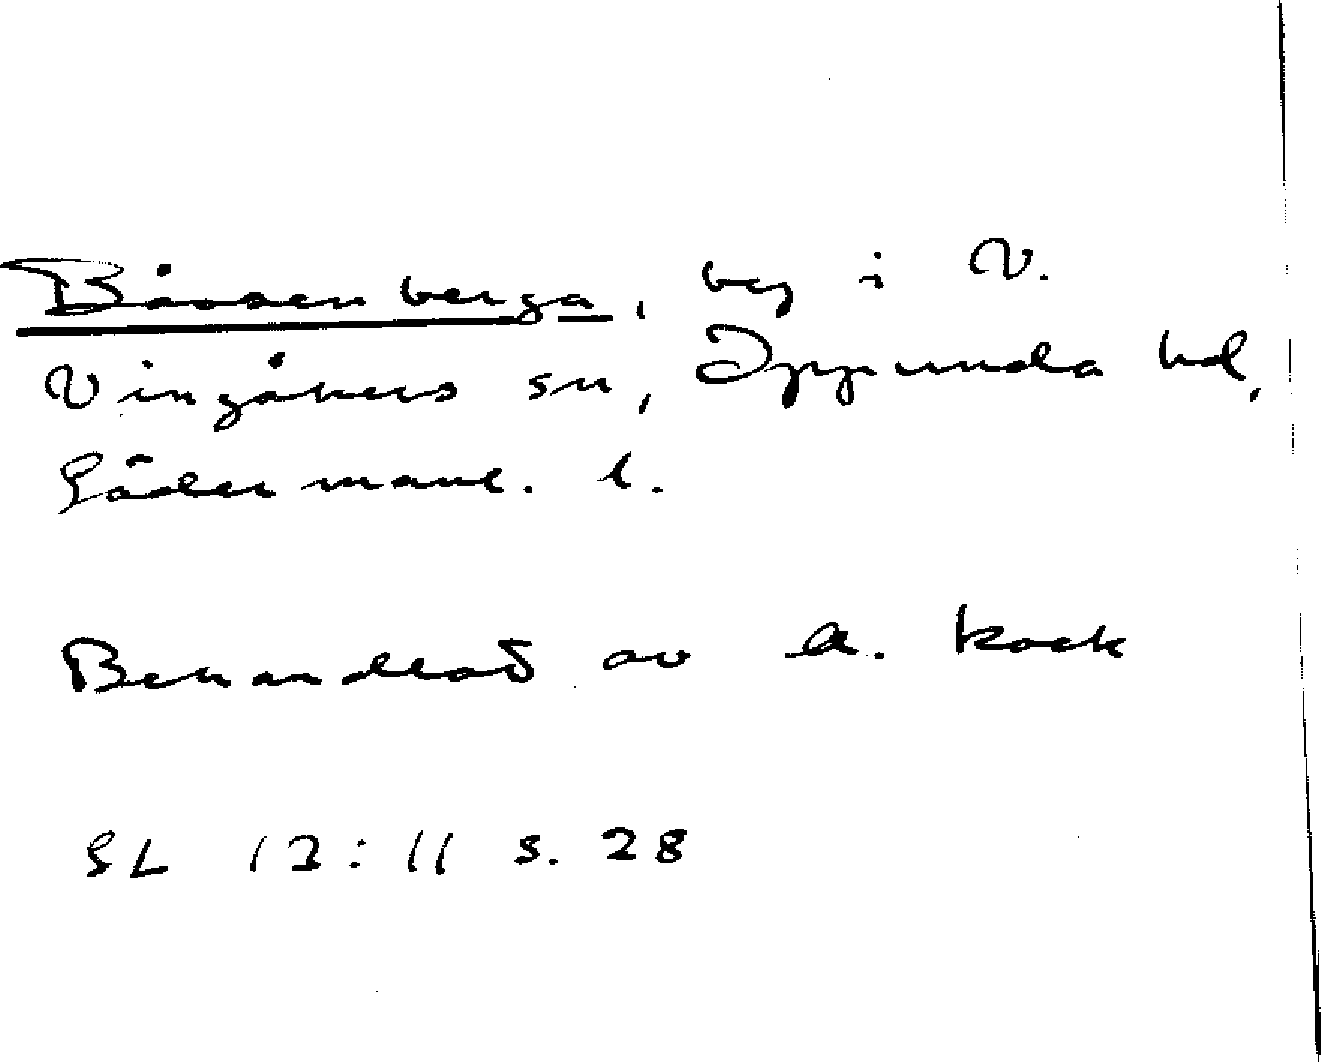 Båsenberga, by i V.
Vingåkers sn, Oppunda hd,
Söderman. l.
Behandlat av A. Kock
SL 12:11 s. 28